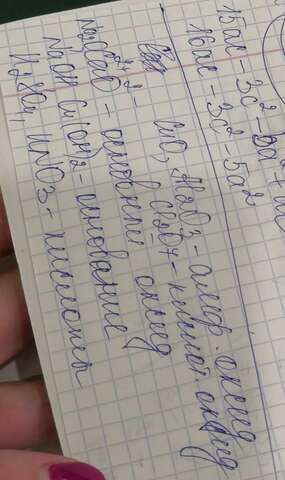 15ac - 3c² - 5a² + ac
16ac - 3c² - 5a²
Al2O3 - амф. оксид
Cl2O7 - кислот. оксид
CaO - основный оксид
NaOH Cu(OH)2 - основание
H2SO4, HNO3 - кислоты